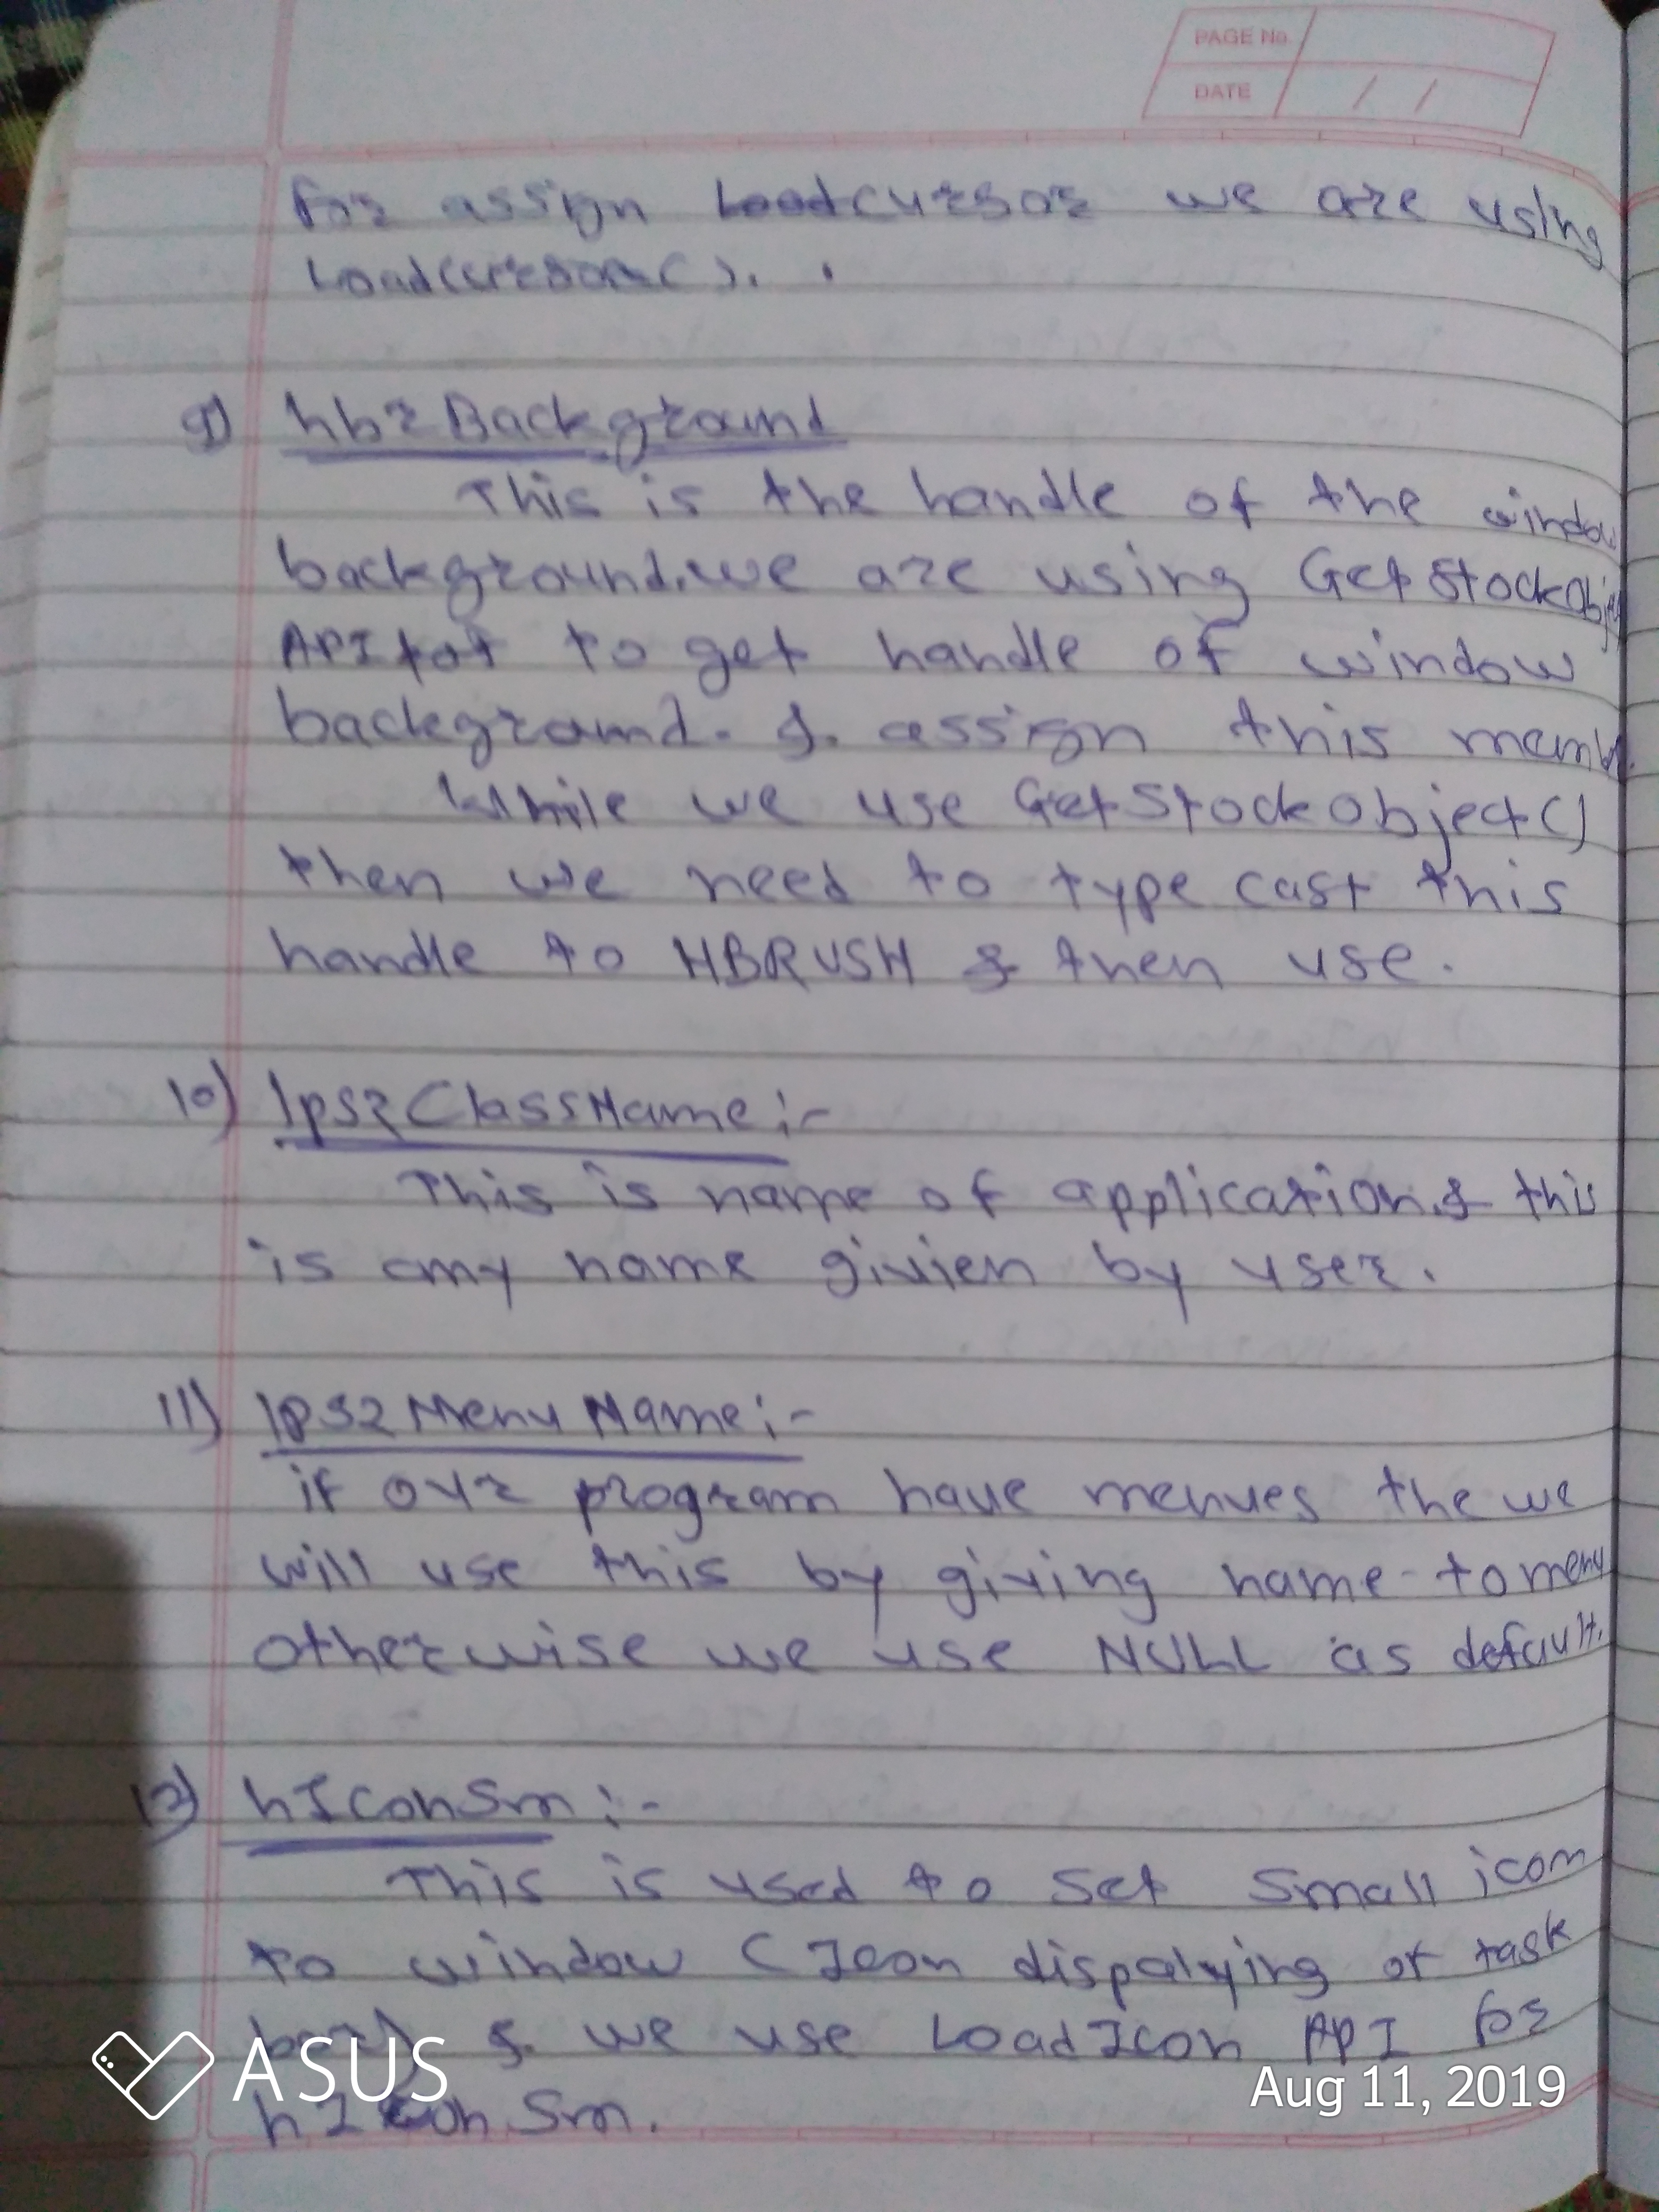 PAGE No.
DATE / /
for assign Loadcursor we are using
LoadCursor().
9) hbrBackground
This is the handle of the window
background. we are using GetStockObje
API to get handle of window
background. & assign this memb
While we use GetStockObject()
then we need to type cast this
handle to HBRUSH & then use.
10) lpszClassName :-
This is name of application. & this
is any name givien by user.
11) lpszMenuName :-
if our program have menues the we
will use this by giving name to menu
otherwise we use NULL as default.
12) hIconSm :-
This is used to set small icon
to window (Icon dispalying of task
bar) & we use LoadIcon API for
hIconSm.
ASUS
Aug 11, 2019